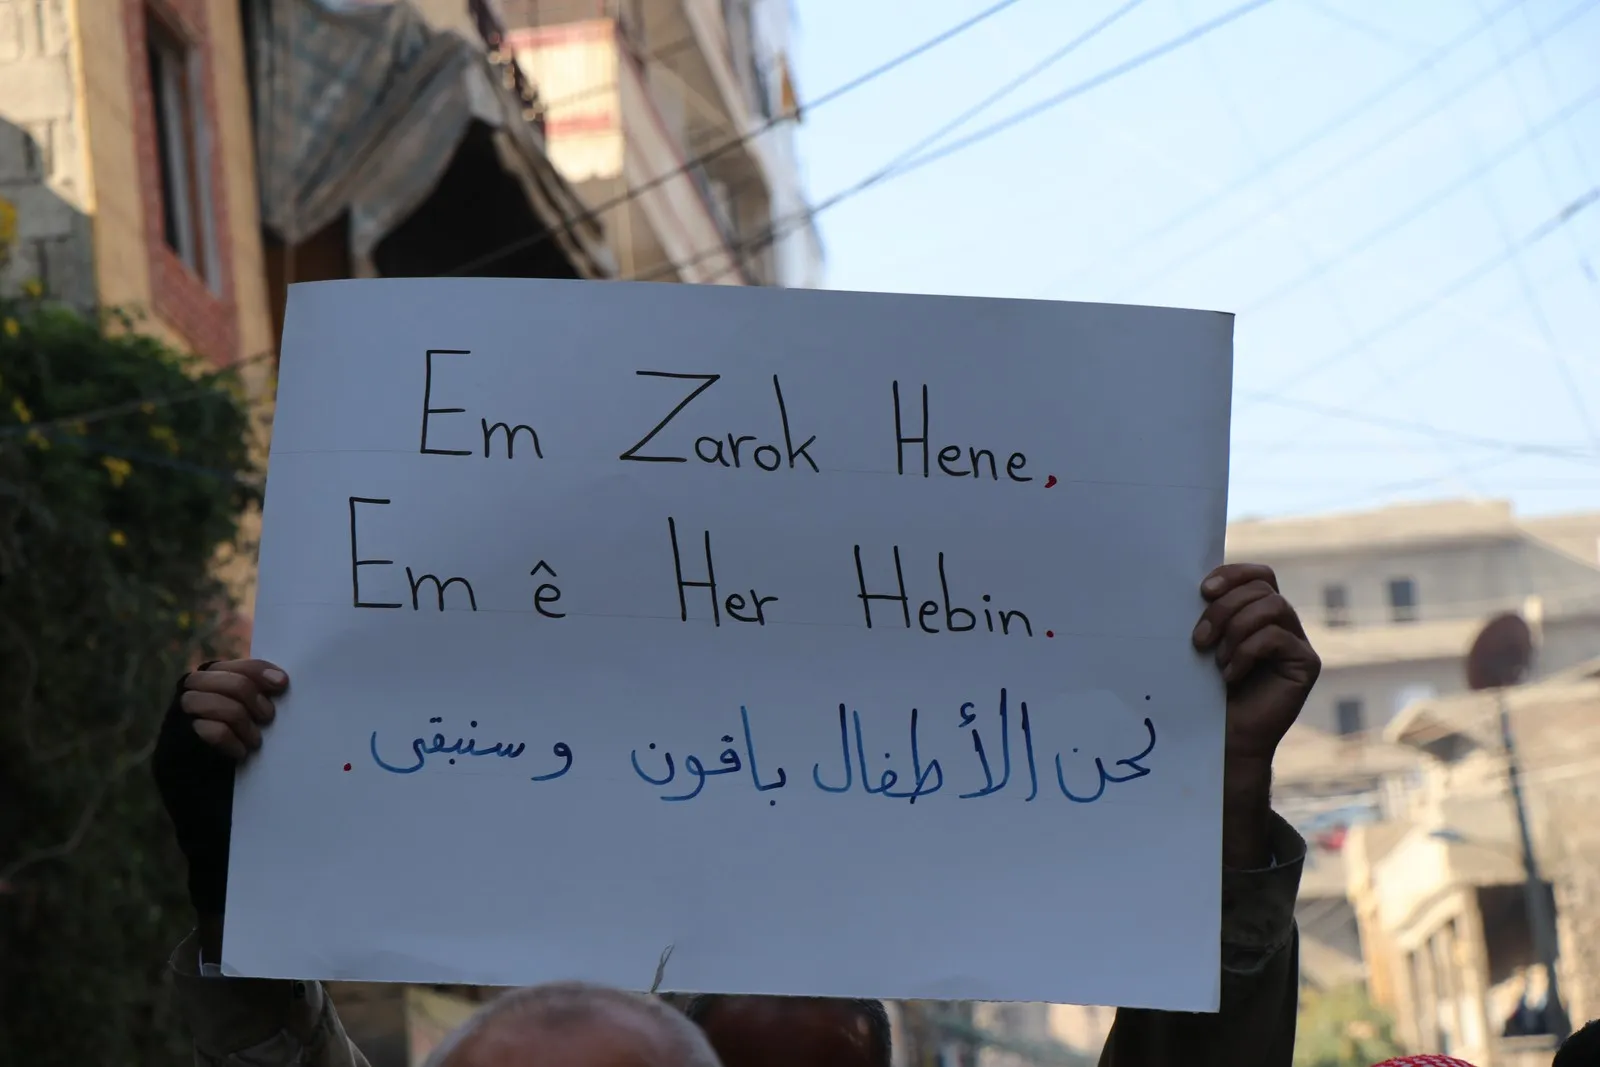 Em Zarok Hene,
Em ê Her Hebin.
نحن الأطفال باقون وسنبقى.